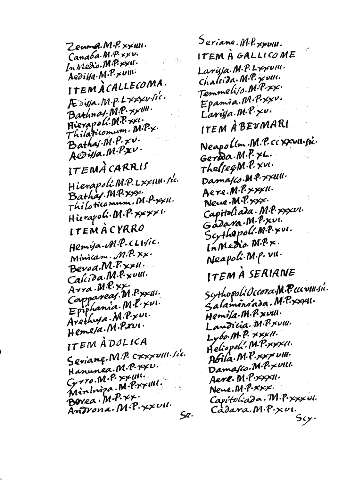 Zeuma. M.P. XXIIII.
Canaba. M.P. XXV.
In Medio. M.P. XXII.
Aedissa. M.P. XVIII.
ITEM À CALLECOMA.
Ædissa. M.p. LXXXV. sic.
Bathnas. M.P. XXIIII.
Hierapoli. M.P. XXI.
Thilaticomum. M.P. X.
Bathas. M.P. XV.
Aedissa. M.P. XV.
ITEM À CARRIS
Hierapoli. M.P. LXXXIII. sic.
Bathas. M.P. XXX.
Thilaticomum. M.P. XXII.
Hierapoli. M.P. XXXXI.
ITEM À CYRRO
Hemisa. M.P. CLI. sic.
Minicam. M.P. XX.
Beroa. M.P. XXII.
Calcida. M.P. XVIII.
Arra. M.P. XX.
Cappareas. M.P. XXIII.
Epiphania. M.P. XVI.
Arethusa. M.P. XVI.
Hemesa. M.P. XVI.
ITEM À DOLICA
Seriane. M.P. CXXXVIII. sic.
Hanunea. M.P. XXV.
Cyrro. M.P. XXIIII.
Minniza. M.P. XXIIII.
Beroa. M.P. XX.
Androna. M.P. XXVII.
Se-
Seriane. M.P. XXVIII.
ITEM À GALLICOME
Larissa. M.P. LXXVIIII.
Chalcida. M.P. XVIII.
Temmeliso. M.P. XX.
Epamia. M.P. XXV.
Larissa. M.P. XV.
ITEM À BEUMARI
Neapolim. M.P. CCXXVII. sic.
Geroda. M.P. XL.
Thelsee. M.P. XVI.
Damasco. M.P. XXIIII.
Aere. M.P. XXXII.
Neue. M.P. XXX.
Capitoliada. M.P. XXXVI.
Gadara. M.P. XVI.
Scythopoli. M.P. XVI.
In Medio. M.P. X.
Neapoli. M.P. VII.
ITEM À SERIANE
Scythopoli Occora. M.P. CCCXVIII sic.
Salaminiada. M.P. XXXII.
Hemisa. M.P. XVIII.
Laudicia. M.P. XVIII.
Lybo. M.P. XXXII.
Heliopoli. M.P. XXXII.
Abila. M.P. XXXVIII.
Damasco. M.P. XVIII.
Aere. M.P. XXXII.
Neue. M.P. XXX.
Capitoliada. M.P. XXXVI.
Cadara. M.P. XVI.
Scy-